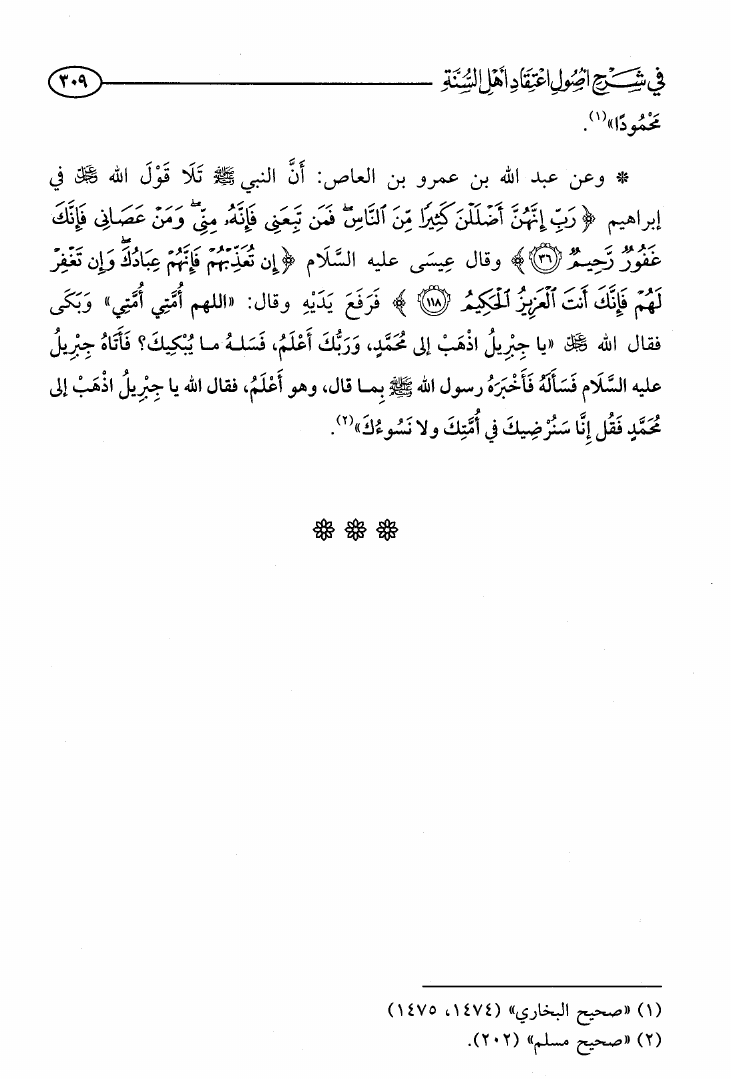 في شرح أصول اعتقاد أهل السنة
٣٠٩
مَحْمُودًا»(١).
* وعن عبد الله بن عمرو بن العاص: أَنَّ النبي ﷺ تَلَا قَوْلَ الله ﷻ في
إبراهيم ﴿رَبِّ إِنَّهُنَّ أَضْلَلْنَ كَثِيرًا مِّنَ ٱلنَّاسِۖ فَمَن تَبِعَنِى فَإِنَّهُۥ مِنِّىۖ وَمَنْ عَصَانِى فَإِنَّكَ
غَفُورٌ رَّحِيمٌ ٣٦﴾ وقال عِيسَى عليه السَّلَام ﴿إِن تُعَذِّبْهُمْ فَإِنَّهُمْ عِبَادُكَۖ وَإِن تَغْفِرْ
لَهُمْ فَإِنَّكَ أَنتَ ٱلْعَزِيزُ ٱلْحَكِيمُ ١١٨﴾ فَرَفَعَ يَدَيْهِ وقال: «اللهم أُمَّتِي أُمَّتِي» وَبَكَى
فقال الله ﷻ «يا جِبْرِيلُ اذْهَبْ إلى مُحَمَّدٍ، وَرَبُّكَ أَعْلَمُ، فَسَلهُ ما يُبْكِيكَ؟ فَأَتَاهُ جِبْرِيلُ
عليه السَّلَام فَسَأَلَهُ فَأَخْبَرَهُ رسول الله ﷺ بِمـا قال، وهو أَعْلَمُ، فقال الله يا جِبْرِيلُ اذْهَبْ إلى
مُحَمَّدٍ فَقُل إِنَّا سَنُرْضِيكَ في أُمَّتِكَ ولا نَسُوءُكَ»(٢).
(١) «صحيح البخاري» (١٤٧٤، ١٤٧٥)
(٢) «صحيح مسلم» (٢٠٢).